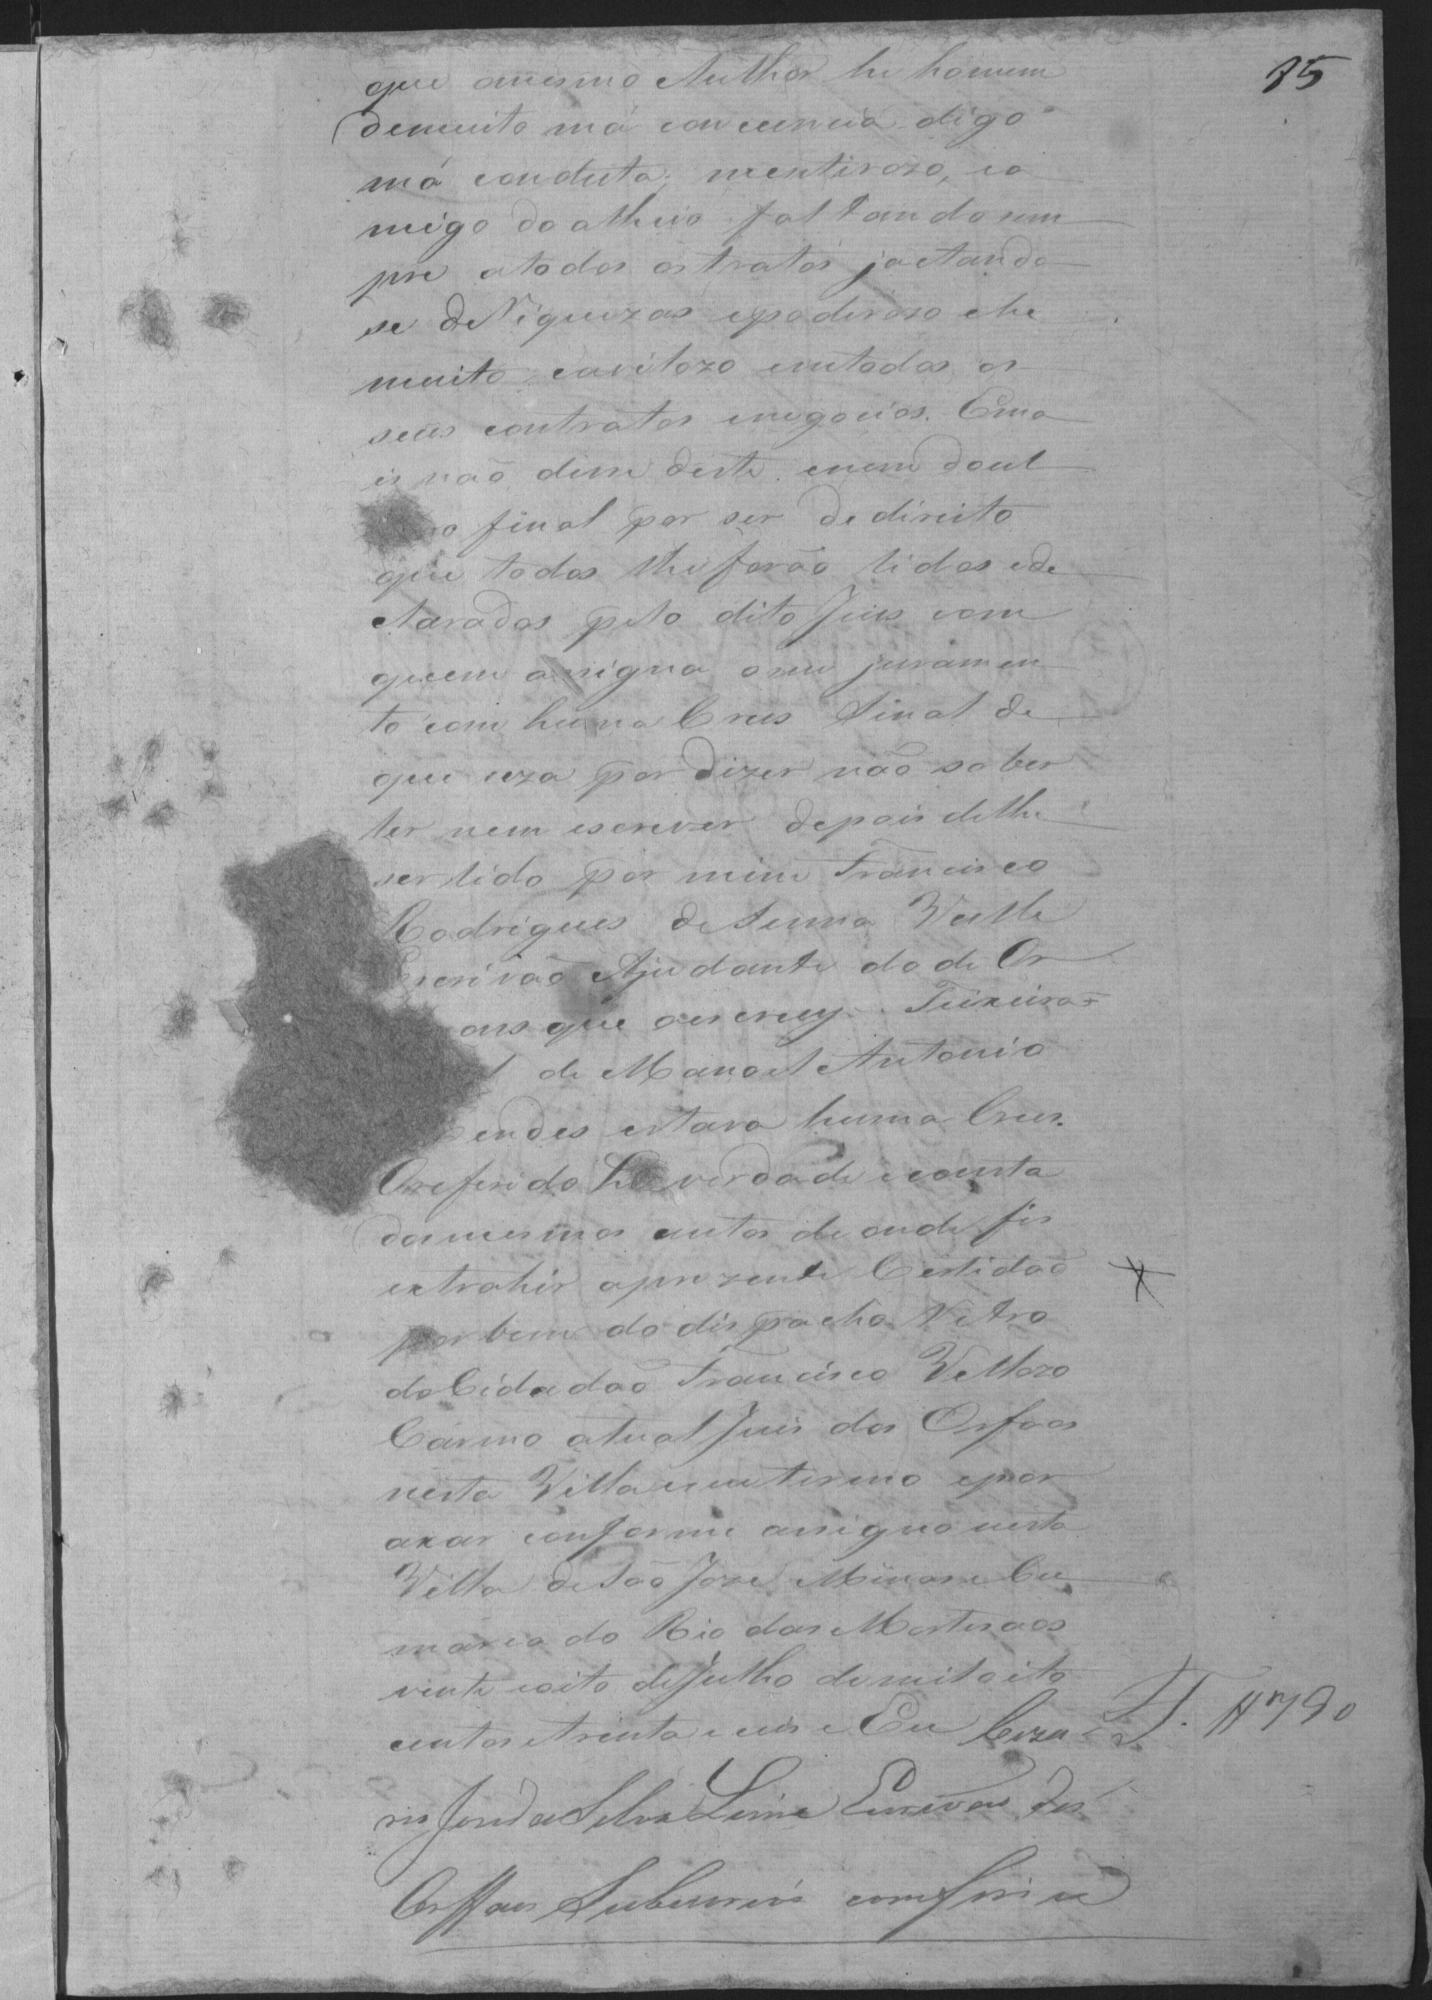 75
que omesmo Author he homem
demuito má conciencia digo
má conduta, mentirozo, ea
migo do alheio faltando sem
pre atodos os tratos jactando
se de Riquezas epoderozo ehe
muito cavilozo emtodos os
seus contratos enegocios. Ema
is não disse deste enem doul
final por ser de direito
que todos lhe forão lidos ede
clarados pelo dito Juis com
quem assigna oseu juramen
to com huma Crus Sinal de
que uza por dizer não saber
ler nem escrever depois delhe
ser lido por mim Francisco
Rodrigues de Senna Valle
Escrivão Ajudante do de Or
que oescrevy. Teixeira =
de Manoel Antonio
Mendes estava huma Crus.
Oreferido he verdade econsta
dosmesmos autos de onde fis
extrahir aprezente Certidão
por bem do dispacho Retro
doCidadão Francisco Vellozo
Carmo atual Juis dos Orfaos
nesta Villa eseutermo epor
axar conforme assigno nesta
Villa de São Joze Minas e Cu
marca do Rio das Mortes aos
vinte eoito de Julho de mil oito
centos etrinta e seis e Eu Ceza
rio José da Silva Lima Escrivão dos
Orffaos Subscrevi comferi e